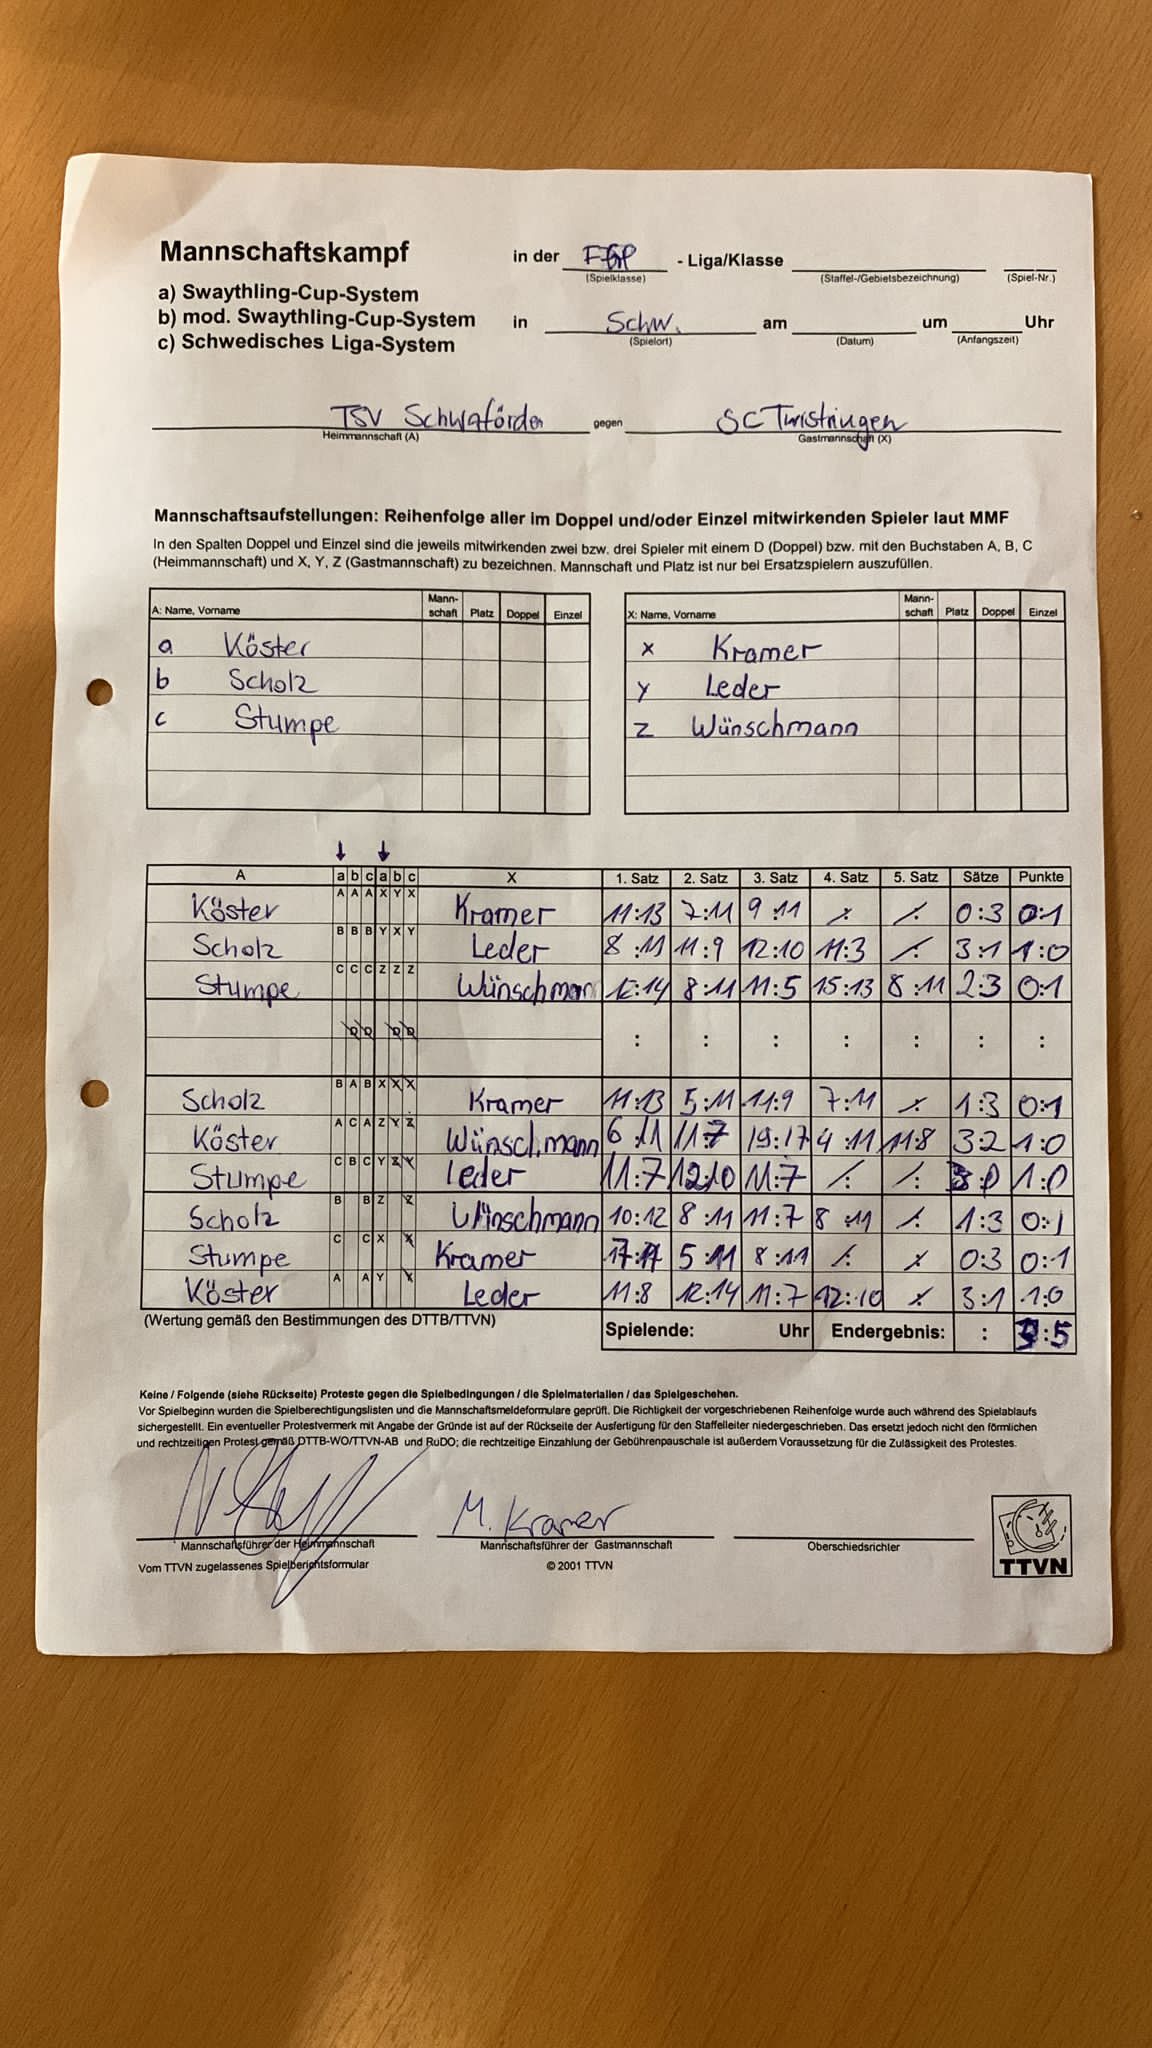 Mannschaftskampf
in der - Liga/Klasse
(Spielklasse) (Staffel-/Gebietsbezeichnung) (Spiel-Nr.)
a) Swaythling-Cup-System
b) mod. Swaythling-Cup-System
c) Schwedisches Liga-System
in Schw. am um Uhr
(Spielort) (Datum) (Anfangszeit)
TSV Schwaförden gegen SC Twistringen
Heimmannschaft (A) Gastmannschaft (X)
Mannschaftsaufstellungen: Reihenfolge aller im Doppel und/oder Einzel mitwirkenden Spieler laut MMF
In den Spalten Doppel und Einzel sind die jeweils mitwirkenden zwei bzw. drei Spieler mit einem D (Doppel) bzw. mit den Buchstaben A, B, C
(Heimmannschaft) und X, Y, Z (Gastmannschaft) zu bezeichnen. Mannschaft und Platz ist nur bei Ersatzspielern auszufüllen.
A: Name, Vorname Mann-schaft Platz Doppel Einzel
a Köster
b Scholz
c Stumpe
X: Name, Vorname Mann-schaft Platz Doppel Einzel
x Kramer
y Leder
z Wünschmann
A a b c a b c X 1. Satz 2. Satz 3. Satz 4. Satz 5. Satz Sätze Punkte
Köster A A A X Y X Kramer 11:13 7:11 9:11 0:3 0:1
Scholz B B B Y X Y Leder 8:11 11:9 12:10 11:3 3:1 1:0
Stumpe C C C Z Z Z Wünschmann 12:14 8:11 11:5 15:13 8:11 2:3 0:1
D D D D : : : : : : :
Scholz B A B X X X Kramer 11:13 5:11 11:9 7:11 1:3 0:1
Köster A C A Z Y Z Wünschmann 6:11 11:7 19:17 4:11 11:8 3:2 1:0
Stumpe C B C Y Z Y Leder 11:7 12:10 11:7 3:0 1:0
Scholz B B Z Z Wünschmann 10:12 8:11 11:7 8:11 1:3 0:1
Stumpe C C X X Kramer 5:11 8:11 0:3 0:1
Köster A A Y Y Leder 11:8 12:14 11:7 12:10 3:1 1:0
(Wertung gemäß den Bestimmungen des DTTB/TTVN) Spielende: Uhr Endergebnis: : :5
Keine / Folgende (siehe Rückseite) Proteste gegen die Spielbedingungen / die Spielmaterialien / das Spielgeschehen.
Vor Spielbeginn wurden die Spielberechtigungslisten und die Mannschaftsmeldeformulare geprüft. Die Richtigkeit der vorgeschriebenen Reihenfolge wurde auch während des Spielablaufs
sichergestellt. Ein eventueller Protestvermerk mit Angabe der Gründe ist auf der Rückseite der Ausfertigung für den Staffelleiter niedergeschrieben. Das ersetzt jedoch nicht den förmlichen
und rechtzeitigen Protest gemäß DTTB-WO/TTVN-AB und RuDO; die rechtzeitige Einzahlung der Gebührenpauschale ist außerdem Voraussetzung für die Zulässigkeit des Protestes.
M. Kramer
Mannschaftsführer der Heimmannschaft Mannschaftsführer der Gastmannschaft Oberschiedsrichter
Vom TTVN zugelassenes Spielberichtsformular © 2001 TTVN TTVN